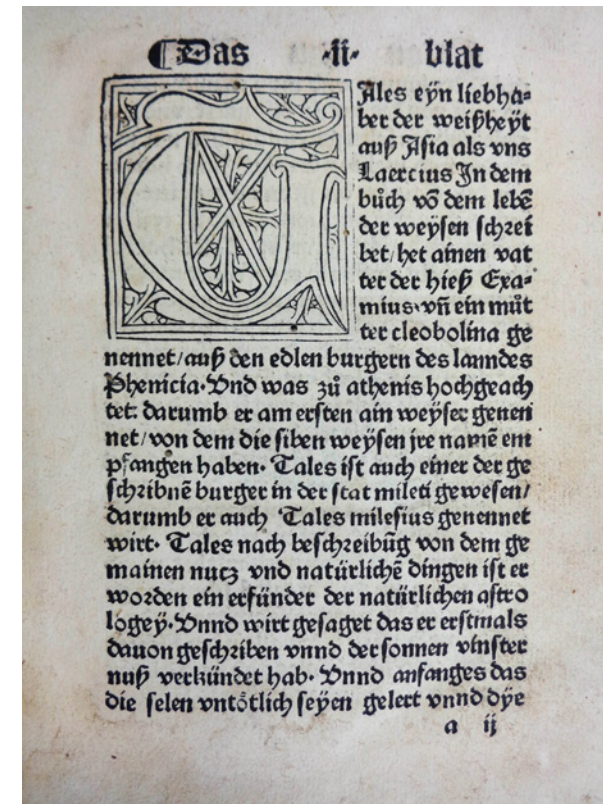 ⸿Das ·ii· blat
TAles eÿn liebha⸗
ber der weißheÿt
auß Asia als vns
Laercius In dem
bůch võ dem lebẽ
der weysen schrei
bet/het ainen vat
ter der hieß Exa⸗
mius·vñ ein můt
ter cleobolina ge
nennet/auß den edlen burgern des lanndes
Phenicia·Vnd was zů athenis hochgeach
tet: darumb er am ersten ain weyser genen
net/von dem die siben weysen jre namẽ em
pfangen haben· Tales ist auch einer der ge
schribnẽ burger in der stat mileti gewesen/
darumb er auch Tales milesius genennet
wirt· Tales nach beschreibũg von dem ge
mainen nucz vnd natürlichẽ dingen ist er
worden ein erfünder der natürlichen astro
logeÿ·Vnnd wirt gesaget das er erstmals
dauon geschriben vnnd der sonnen vinster
nuß verkündet hab· Vnnd anfanges das
die selen vntötlich seÿen gelert vnnd dÿe
a ij